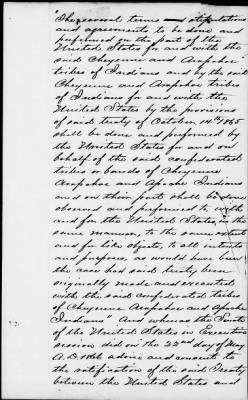 "The several terms — stipulations
and agreements to be done and
performed on the part of the
United States for and with the
said Cheyenne and Arapahoe
tribes of Indians and by the said
Cheyenne and Arapahoe tribes
of Indians for and with the
United States by the provisions
of said treaty of October 14th 1865
shall be done and performed by
the United States for and on
behalf of the said confederated
tribes or bands of Cheyenne
Arapahoe and Apache Indians
and on their part shall be done
observed and performed to, with
and for the United States in the
same manner, to the same extent
and for like objects, to all intents
and purposes, as would have been
the case had said treaty been
originally made and executed
with the said confederated tribes
of Cheyenne Arapahoe and Apache
Indians" And whereas the Senate
of the United States in Executive
session did on the 22nd day of May
A.D. 1866 advise and consent to
the ratification of the said Treaty
between the United States and